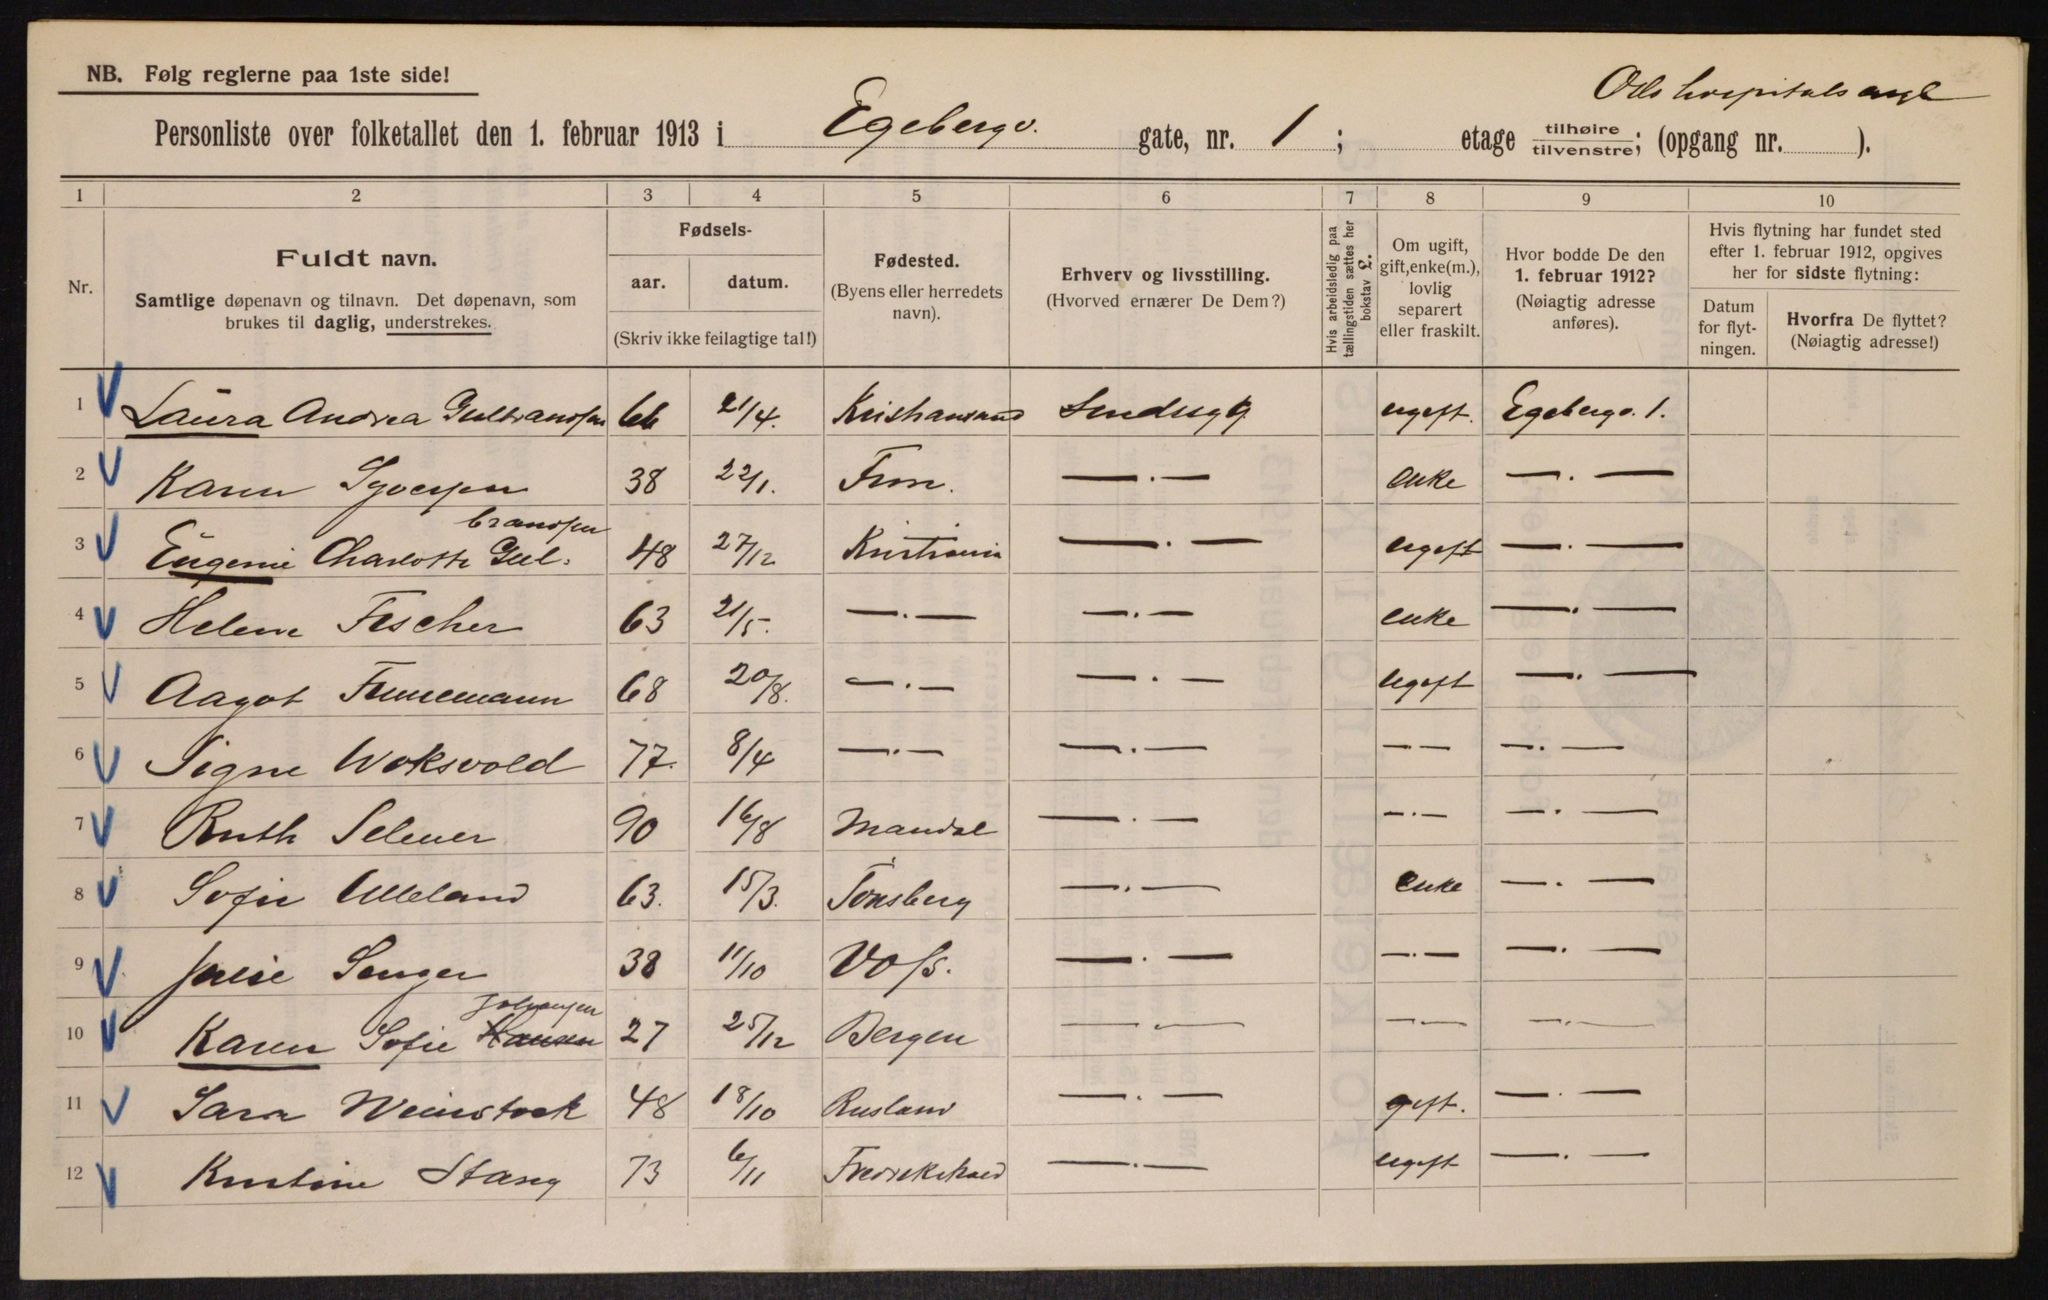 NB. Følg reglerne paa 1ste side!
hospitals
Personliste over folketallet den 1. februar 1913 i Egebergv. gate, nr. 1; etage tilhøire tilvenstre; (opgang nr. ).
1 2 3 4 5 6 7 8 9 10
Nr.
Fuldt navn.
Samtlige døpenavn og tilnavn. Det døpenavn, som
brukes til daglig, understrekes.
Fødsels-
aar. datum.
(Skriv ikke feilagtige tal!)
Fødested.
(Byens eller herredets
navn).
Erhverv og livsstilling.
(Hvorved ernærer De Dem?)
Hvis arbeidsledig paa
tællingstiden sættes her
bokstav L.
Om ugift,
gift, enke(m.),
lovlig
separert
eller fraskilt.
Hvor bodde De den
1. februar 1912?
(Nøiagtig adresse
anføres).
Hvis flytning har fundet sted
efter 1. februar 1912, opgives
her for sidste flytning:
Datum
for flyt-
ningen.
Hvorfra De flyttet?
(Nøiagtig adresse!)
1 Laura Andrea Gulbrandsen 66 21/4. Kristiansand ugift. Egebergv. 1.
2 Karen Syversen 38 22/1. Fron. —.— enke —.—
brandsen
3 Eugenie Charlotte Gul- 48 27/12 Kristiania —.— ugift —.—
4 Helene Fischer 63 21/5. —.— —.— enke —.—
5 Aagot 68 20/8. —.— —.— ugift —.—
6 Signe Woksvold 77. 8/4 —.— —.— —.— —.—
7 Ruth Selmer 90 16/8 Mandal —.— —.— —.—
8 Sofie Ulleland 63. 15/3. Tønsberg —.— enke —.—
9 38 11/10 Voss. —.— —.— —.—
Johansen
10 Karen Sofie Hansen 27 25/12 Bergen —.— —.— —.—
11 Sara Weinstock 48 18/10 Rusland —.— gift. —.—
12 Kristine Stang 73 6/11 Fredrikshald —.— ugift —.—